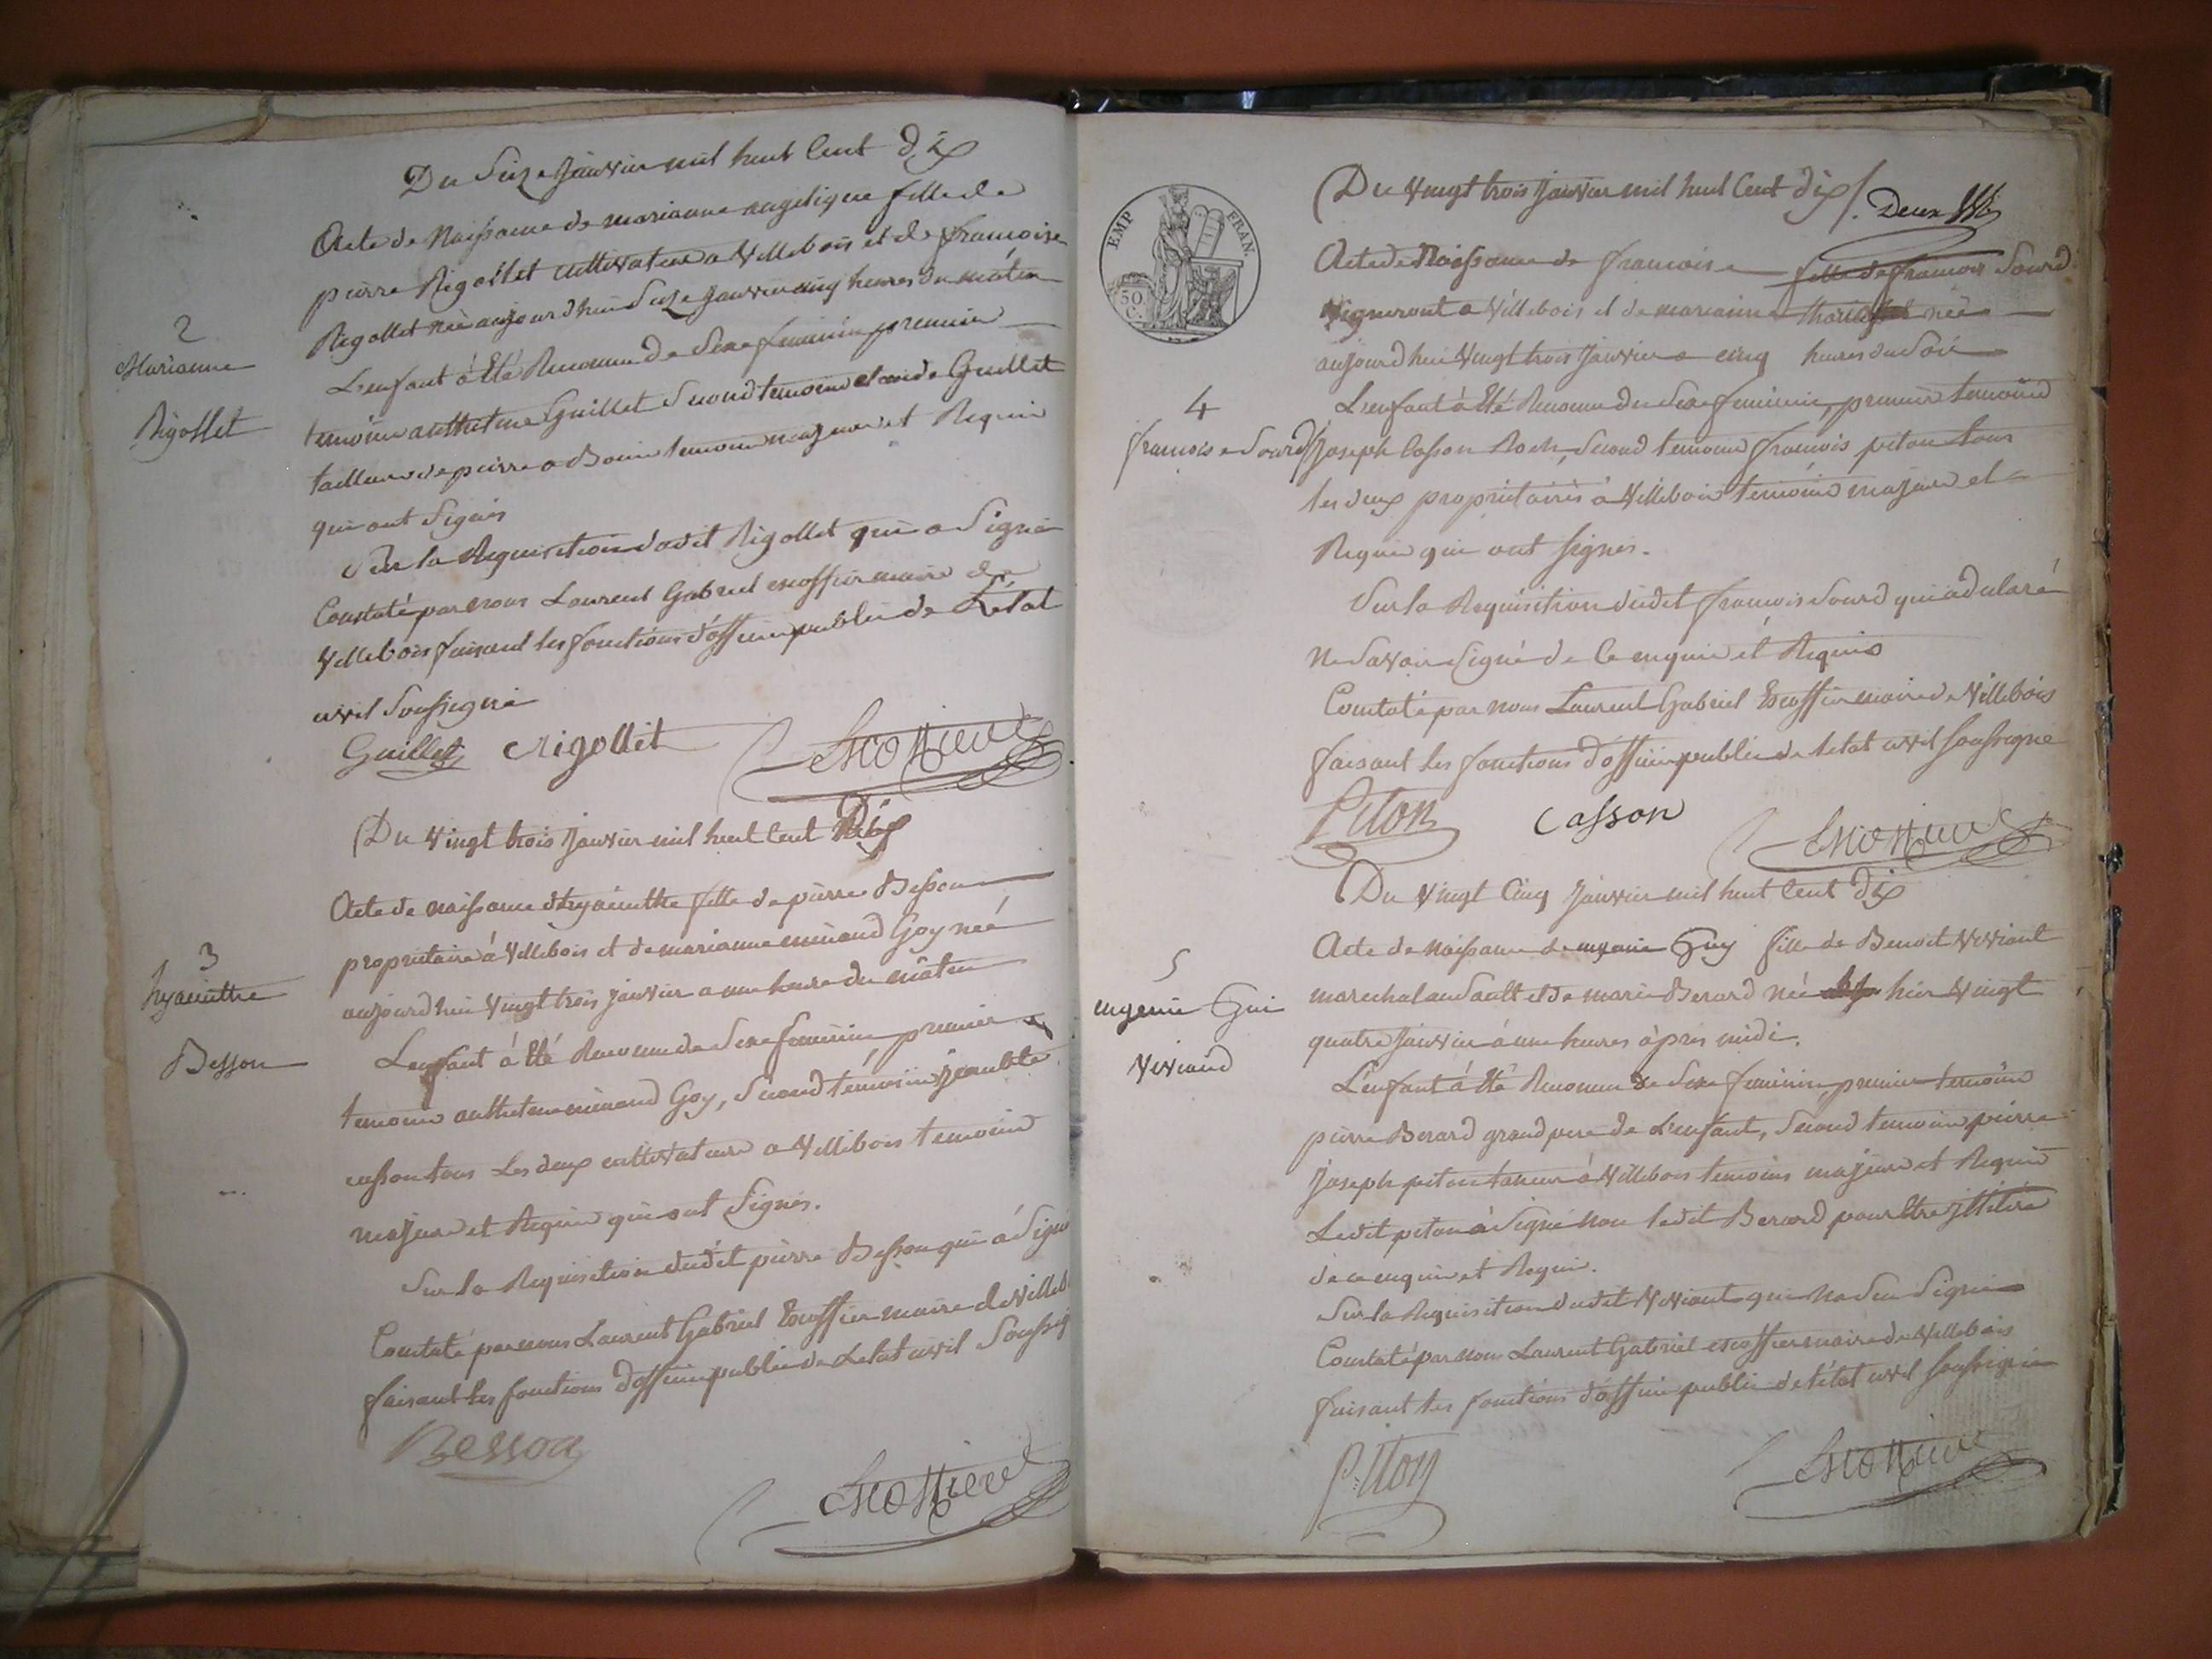 Du Seize janvier mil huit Cent Dix
Acte de Naissance de marianne angelique fille de
pierre Rigollet cultivateur a Villebois et de francoise
Rigollet née aujourd'hui Seize janvier cinq heures du matin
L'enfant à été Reconnu de Sexe feminin premier
temoin anthelme Guillet Second temoin Guillet
tailleur de pierre a Bouis temoins majeur et Requis
qui ont Signés
Sur la Requisition dudit Rigollet qui a Signé
Constaté par nous Laurent Gabriel escoffier maire de
Villebois faisant les fonctions d'officier public de Létat
civil Soussigné
2
Marianne
Rigollet
Guillet Rigollet Escoffier
Du Vingt trois janvier mil huit Cent Dix
Acte de naissance d'hyacinthe fille de pierre Besson
propriétaire à Villebois et de marianne minand Goy née
aujourd'hui Vingt trois janvier a une heure du matin
L'enfant à été Reconnu de Sexe feminin premier
temoin anthelme minand Goy, Second témoin
casson tous Les deux cultivateurs a Villebois temoins
majeurs et Requis qui ont Signés.
Sur la Requisition dudit pierre Besson qui à Signé
Constaté par nous Laurent Gabriel Escoffier maire de Villeb
faisant les fonctions d'officier public de Létat civil Soussig
3
hyacinthe
Besson
Besson
Escoffier
EMP FRAN.
50 C.
Du Vingt trois janvier mil huit Cent dix /. Deux
Acte de Naissance de francoise fille de francois Sourd
Vigneront a Villebois et de marianne née
aujourd'hui Vingt trois janvier a cinq heures du Soir
L'enfant à été Reconnu du Sexe feminin, premier temoins
joseph Casson Roch, Second temoin francois piton tous
les deux propriétaires à Villebois temoins majeurs et
Requis qui ont signés.
Sur la Requisition dudit francois Sourd qui a déclaré
Ne Savoir Signé de Ce enquis et Requis
Constaté par nous Laurent Gabriel Escoffier maire de Villebois
faisant les fonctions d'officier public de létat civil soussigné
4
francoise Sourd
Piton Casson Escoffier
Du Vingt Cinq janvier mil huit Cent Dix
Acte de Naissance de eugenie Guy fille de Benoit Viviant
marechal au Sault et de marie Berard née hier Vingt
quatre janvier à une heures àpres midi.
L'enfant à été Reconnu de Sexe feminin, premier temoins
pierre Berard grand pere de L'enfant, Second temoin pierre
joseph piton taneur à Villebois temoins majeurs et Requis
Ledit piton à Signé non ledit Berard pour être illitéré
de ce enquis et Requis.
Sur la Requisition dudit Viviant qui Na Seu Signé
Constaté par nous Laurent Gabriel escoffier maire de Villebois
faisant les fonctions d'officier public de létat civil soussigné
5
eugenie Gui
Viviand
Piton Escoffier